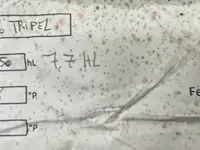 TRIPEL
50 hL 7,7 HL
°P
Fe
°P